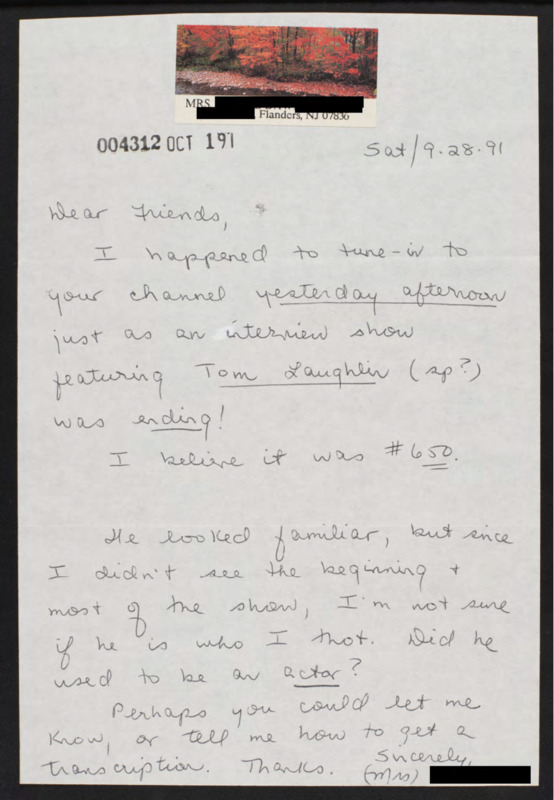 MRS.
Flanders, NJ 07836
004312 OCT 1 9 1
Sat/9.28.91
Dear Friends,
I happened to tune-in to
your channel yesterday afternoon
just as an interview show
featuring Tom Laughlin (sp?)
was ending!
I believe it was #650.
He looked familiar, but since
I didn't see the beginning +
most of the show, I'm not sure
if he is who I thot. Did he
used to be an actor?
Perhaps you could let me
know, or tell me how to get a
transcription. Thanks. Sincerely,
(Mrs)